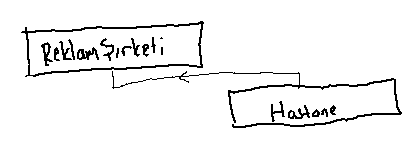 Reklam Şirketi
Hastane